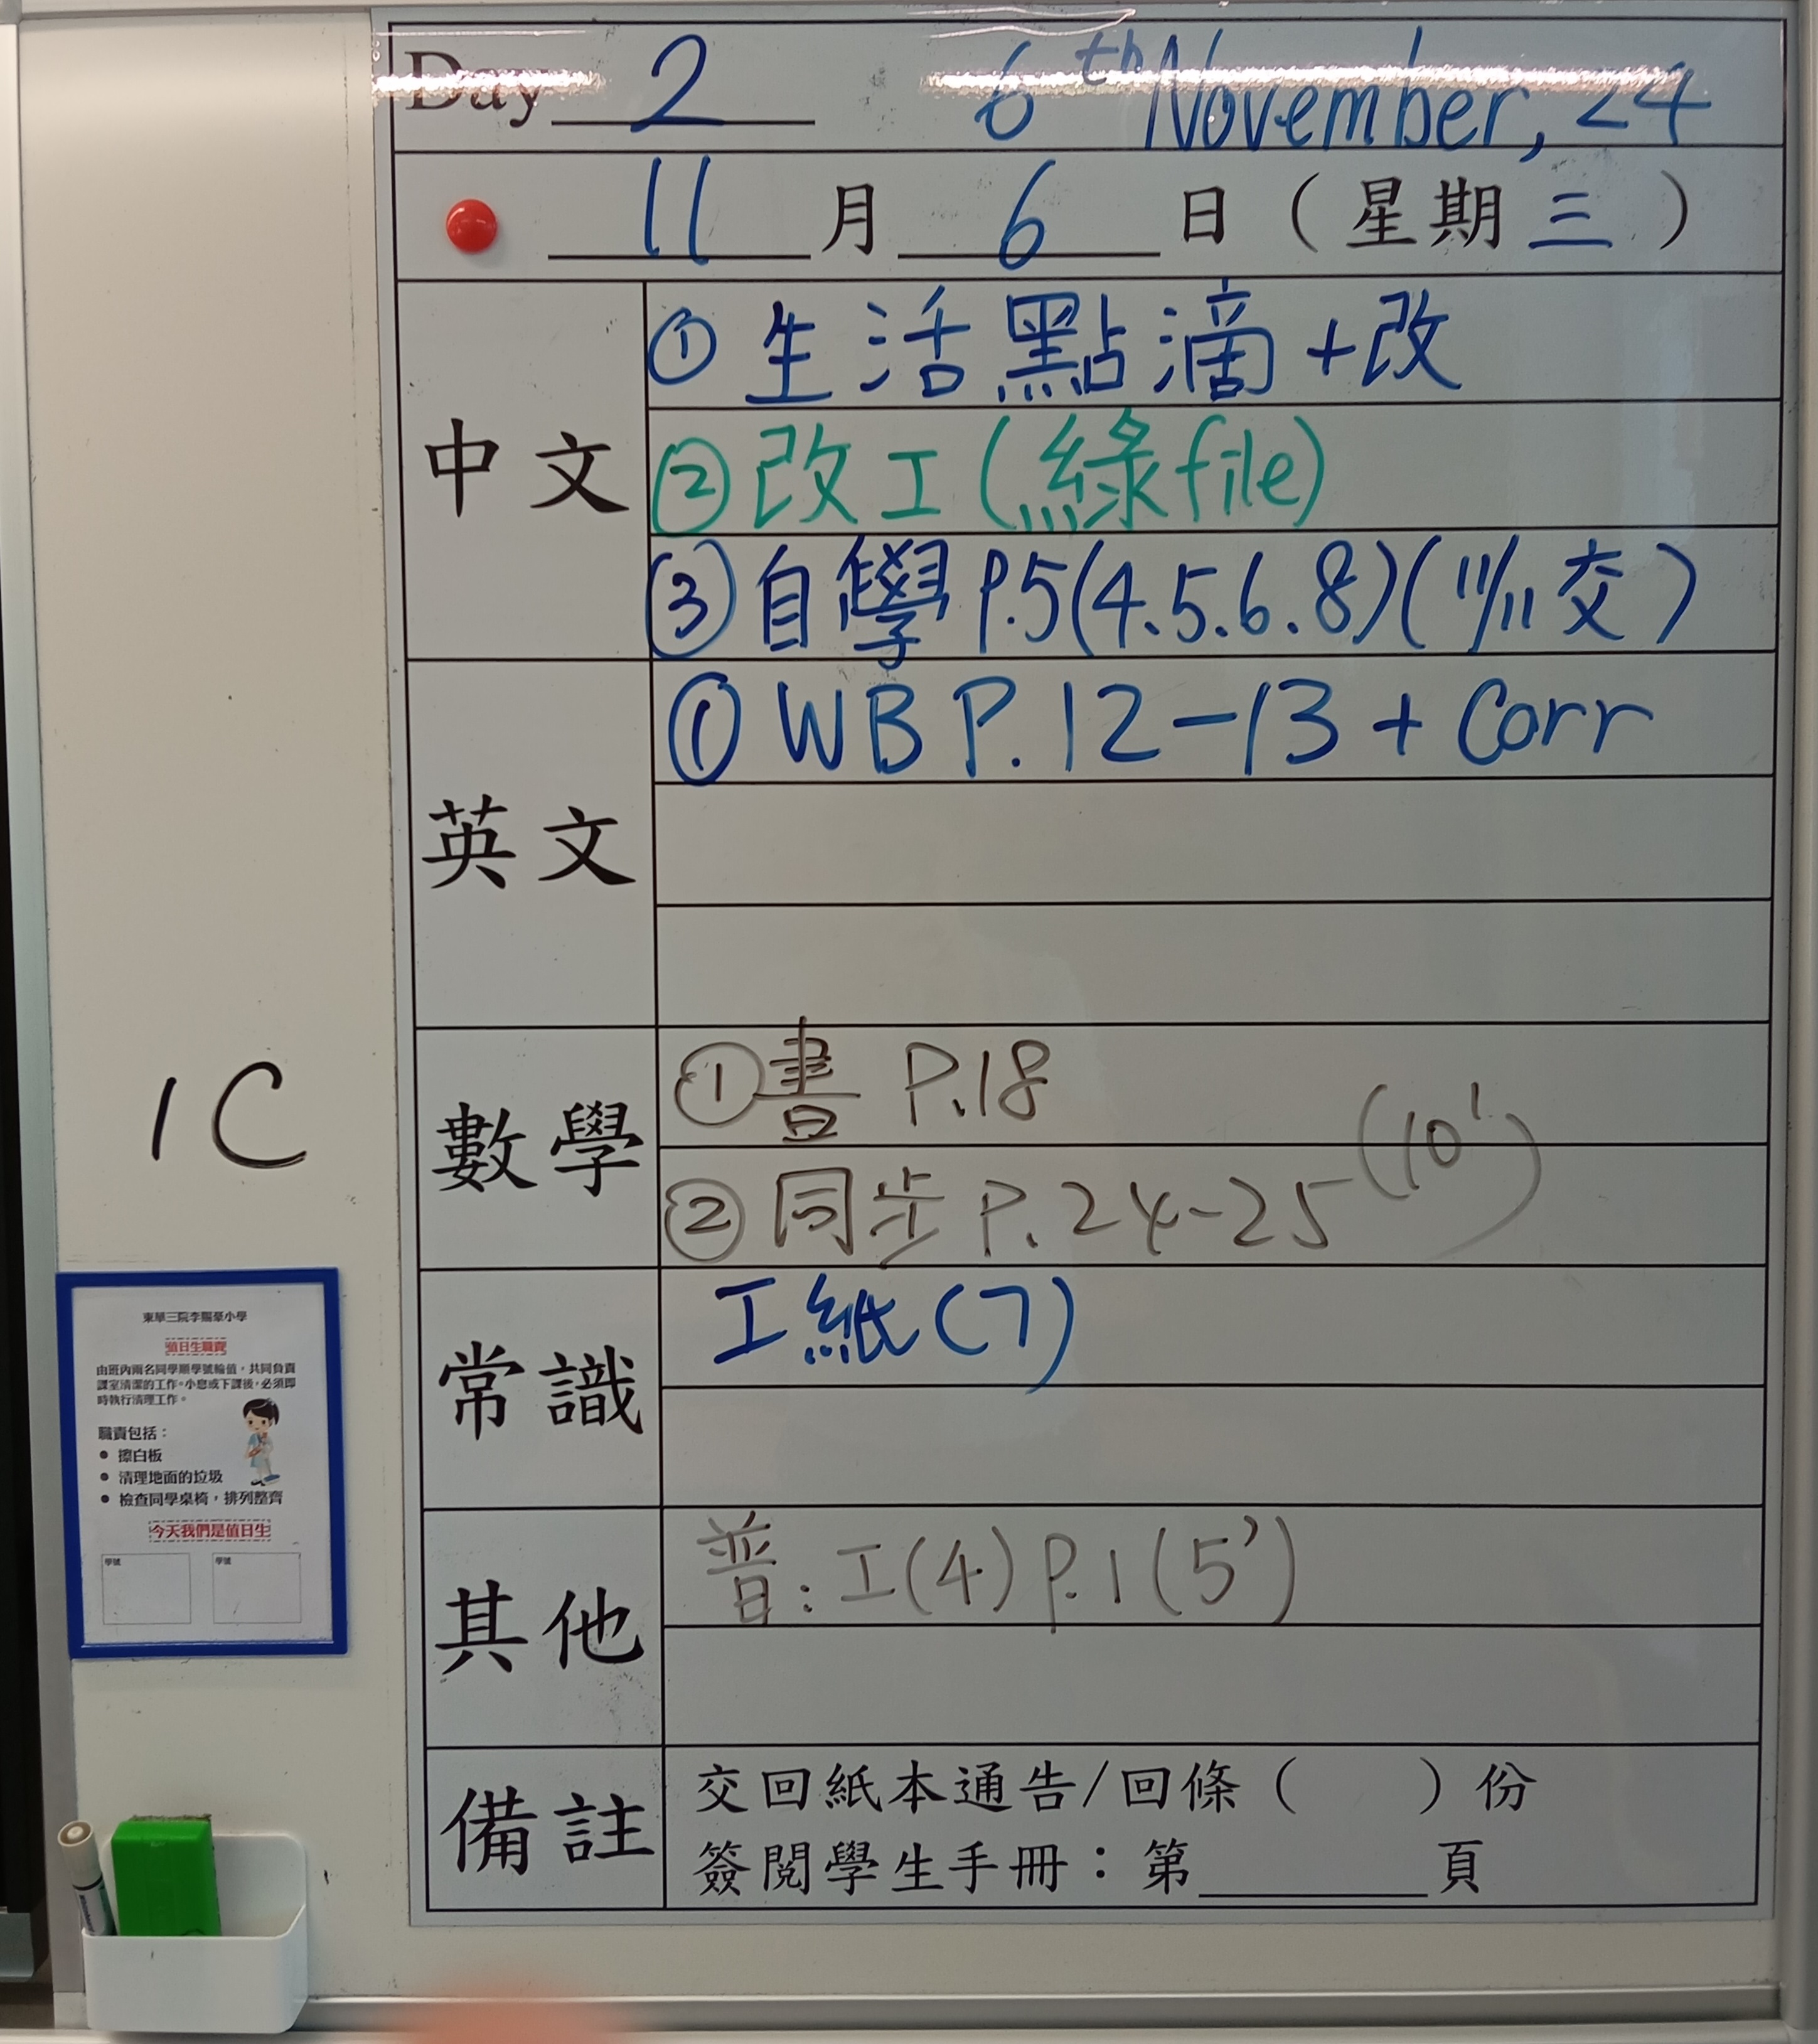 Day 2 6th November, 24
11 月 6 日（星期三）
中文
① 生活點滴+改
② 改工(綠file)
③ 自學 P.5(4.5.6.8)(11/11交)
英文
① WB P.12-13 + Corr
數學
① 書 P.18
② 同步 P.24-25 (10')
常識
工紙(7)
其他
普:工(4) P.1(5')
備註
交回紙本通告/回條（ ）份
簽閱學生手冊：第______頁
1C
東華三院李賜豪小學
值日生職責
由班內兩名同學順學號輪值，共同負責
課室清潔的工作。小息或下課後，必須即
時執行清理工作。
職責包括：
● 擦白板
● 清理地面的垃圾
● 檢查同學桌椅，排列整齊
今天我們是值日生
學號 學號